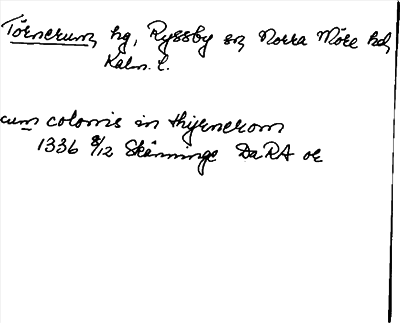 Törnerum, hg, Ryssby sn, Norra Möre hd,
Kalm. l.
cum colonis in thyrnerom
1336 8/12 Skänninge DaRA or